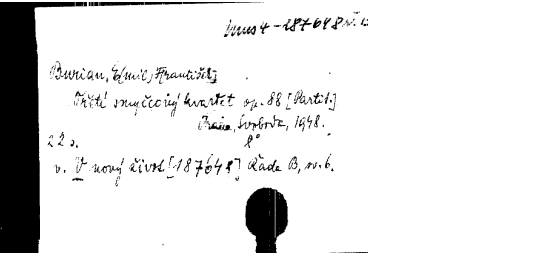 Mus 4 - 187648 sv. 6
Burian, Emil František
Třetí smyčcový kvartet op. 88 [Partit.]
Praha, Svoboda, 1948.
22 s. 8°
v. V nový život [187648] Řada B, sv. 6.